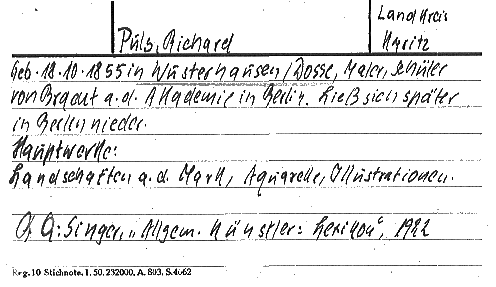 Landkreis
Püls, Richard
Müritz
Geb. 18.10.1855 in Wusterhausen/Dosse, Maler, Schüler
von Bracht a.d. Akademie in Berlin. Ließ sich später
in Berlin nieder.
Hauptwerke:
Landschaften a.d. Mark, Aquarelle, Illustrationen.
Singer, "Allgem. Künstler-Lexikon", 1922
Reg. 10 Stichnote. 1. 50. 232000, A. 803. S. 4062